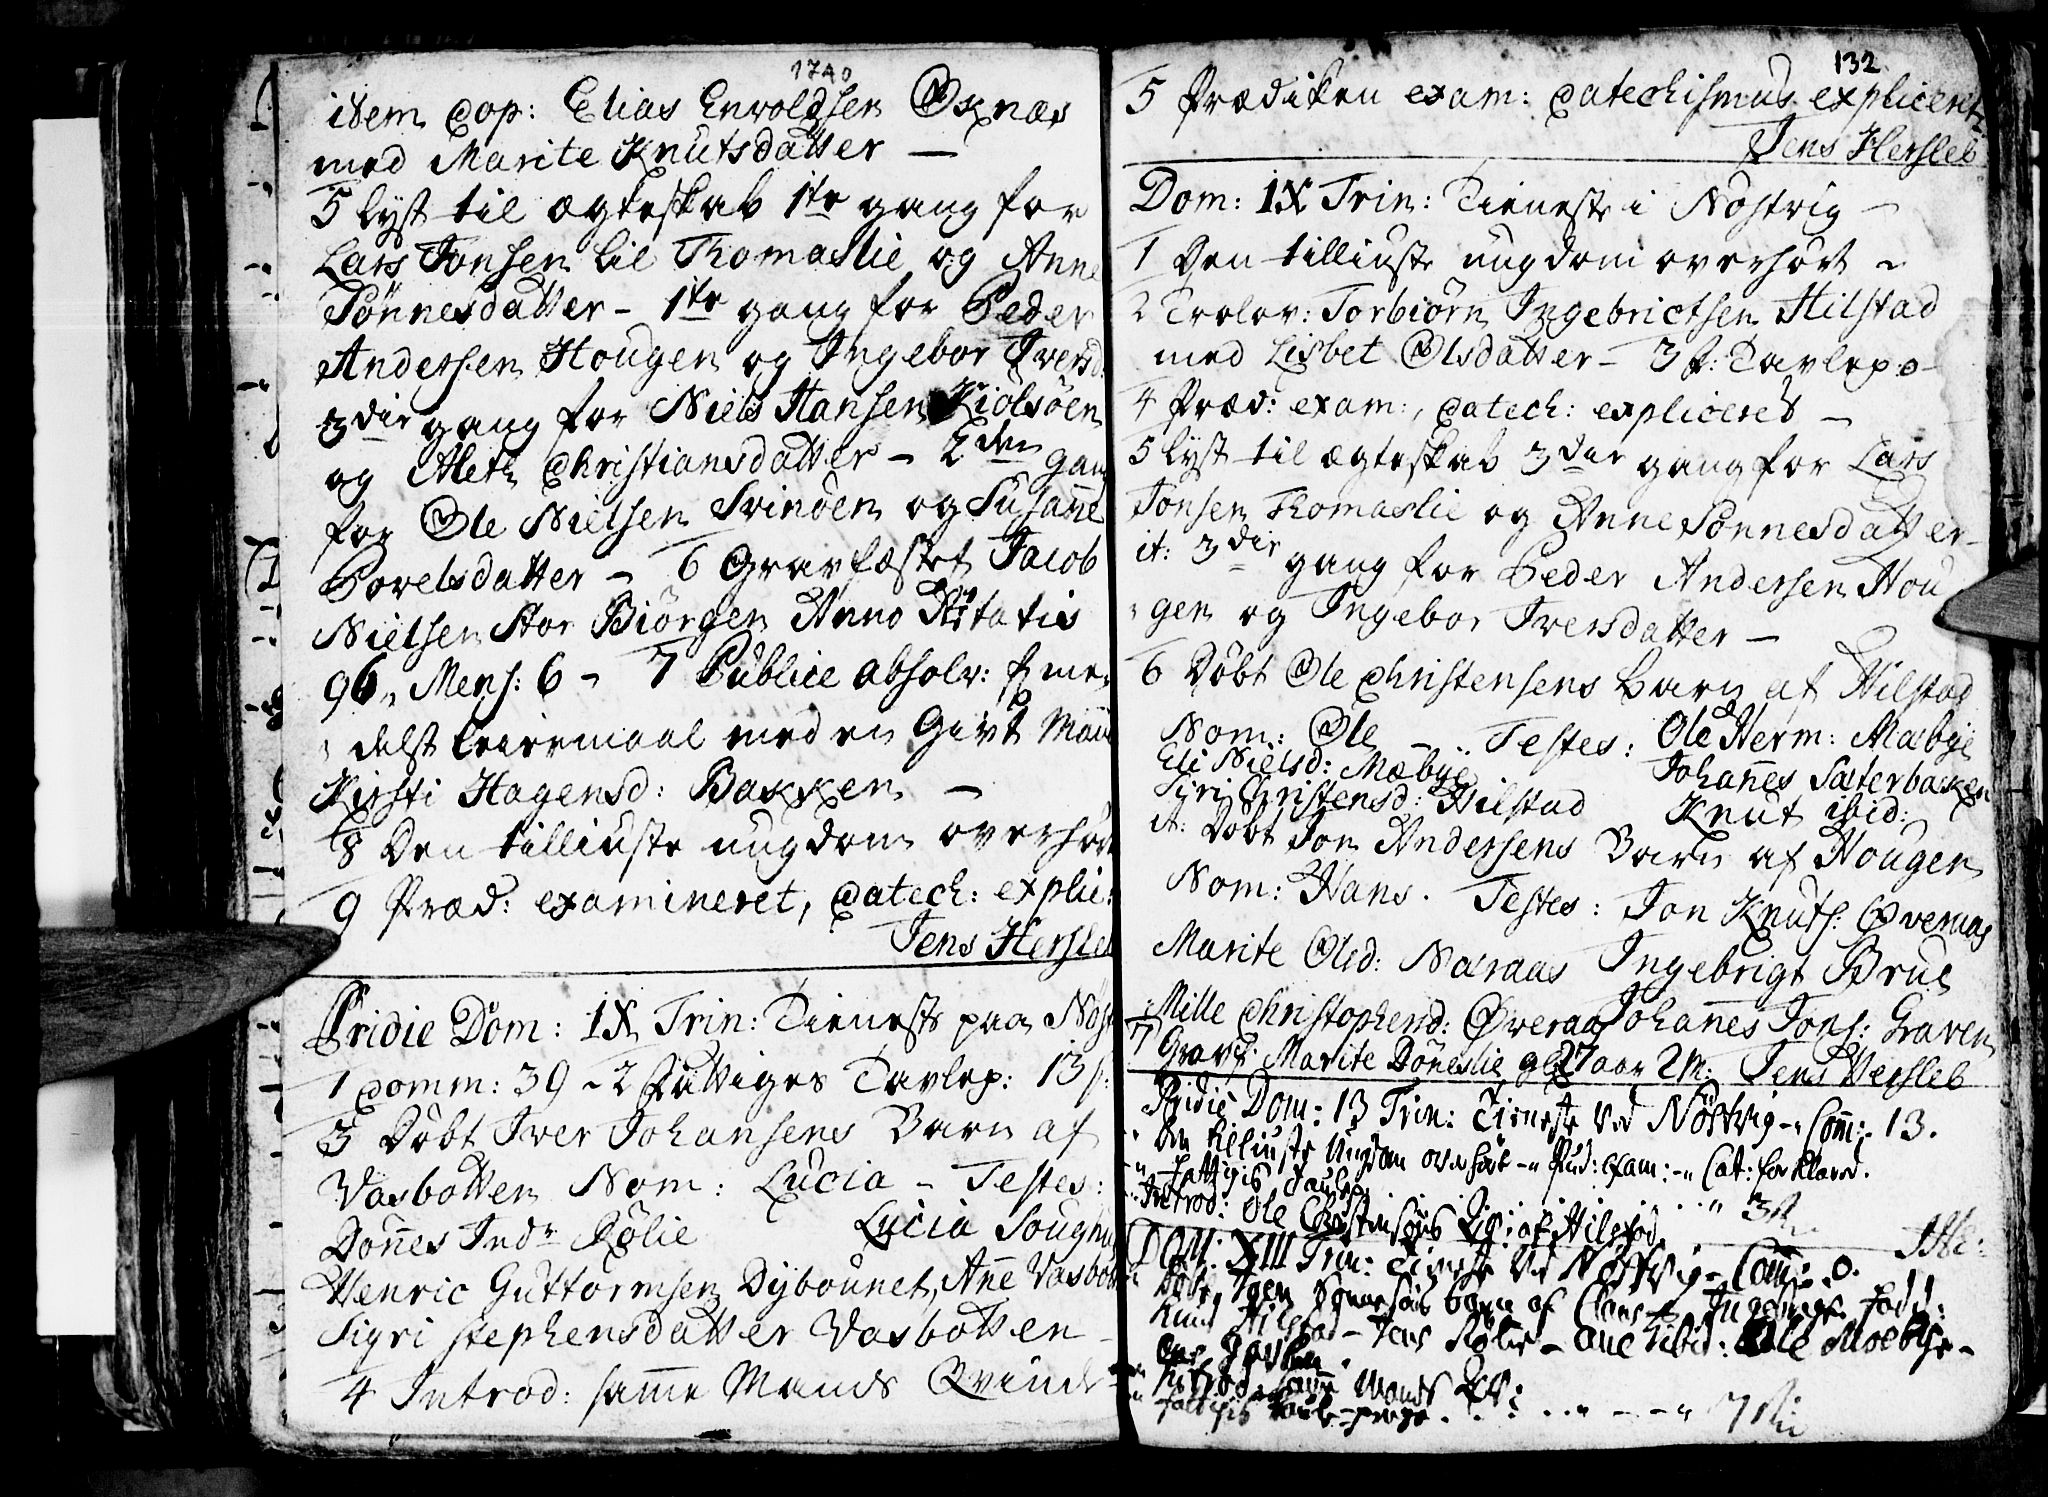 1740
item Cop: Elias Envoldsen Oxnæs
med Marite Knutsdatter –
5 lyst til ægteskab 1te gang for
Lars Jonsen lil Thomaslie og Anne
Tønnesdatter – 1te gang for Peder
Andersen Hougen og Ingebor Iversd:
3die gang for Niels Hansen Kiølsøen
og Aleth Christiansdatter – 2den gang
for Ole Nielsen Svinøen og Susanne
Povelsdatter – 6 Gravfæstet Jacob
Nielsen Stor Biørgen Anno Ætatis
96, Mens: 6 – 7 Publice absolv: for me-
delst leiermaal med en Givt Mand
Kirsti Hagensd: Bakken –
8 Den tilliuste ungdom overhørt
9 Præd: examineret, Catech: explic:
Jens Hersleb
Pridie Dom: IX Trin: Tieneste paa Nøst
1 Comm: 39 – 2 Fattiges Tavlep: 13 s:
3 Døbt Iver Johansens Barn af
Vasbotten Nom: Lucia – Testes:
Dønnes Indr Kølie Lucia Soug
Henric Guttormsen Dybounet, Anne Vasbotten
Sigri Stephensdatter Vasbotten –
4 Introd: samme Mands Qvinde
132
5 Prædiken exam: Catechismus explicerit
Jens Hersleb
Dom: IX Trin: Tieneste i Nøstvig –
1 Den tilliuste ungdom overhørt –
2 Trolov: Torbiørn Ingebrictsen Hilstad
med Lisbet Olsdatter – 3 f: Tavlep: 0
4 Præd: exam:, Catech: expliceret –
5 lyst til ægteskab 3die gang for Lars
Jonsen Thomaslie og Anne Tønnesdatter –
it: 3die gang for Peder Andersen Hou-
gen og Ingebor Iversdatter –
6 Døbt Ole Christensens Barn af Hilstad
Nom: Ole – Testes: Ole Herm: Mæbye
Eli Nielsd: Mæbye Johannes Sæterbakken
Siri Christensd: Hilstad Knut ibid:
it: Døbt Jon Andersens Barn af Hougen
Nom: Hans. Testes: Jon Knuts: Øveraas
Marite Olsd: Næraas Ingebrigt Brue
Mille Christophersd: Øveraas Johannes Jons: Graven
7 Gravf: Marite Døneslie gl: 27 aar 2 M: Jens Hersleb
Pridie Dom: 13 Trin: Tieneste ved Nøstvig – Comm: 13.
Den tilliuste Ungdom overhørt – Præd: Exam: – Cat: forklaret.
Fattigis Taulep: 3 s
Introd: Ole Christensøns Qv: af Hilstad
Dom: XIII Trin: Tieneste ved Nøstvig – Comm: 0.
Døbt barn af
Knud Hilstad – Jens Kølie – Ane ibid: Ole Moebye –
Introd: samme Mands Qv:
Fattigis Taule-penge 7 s